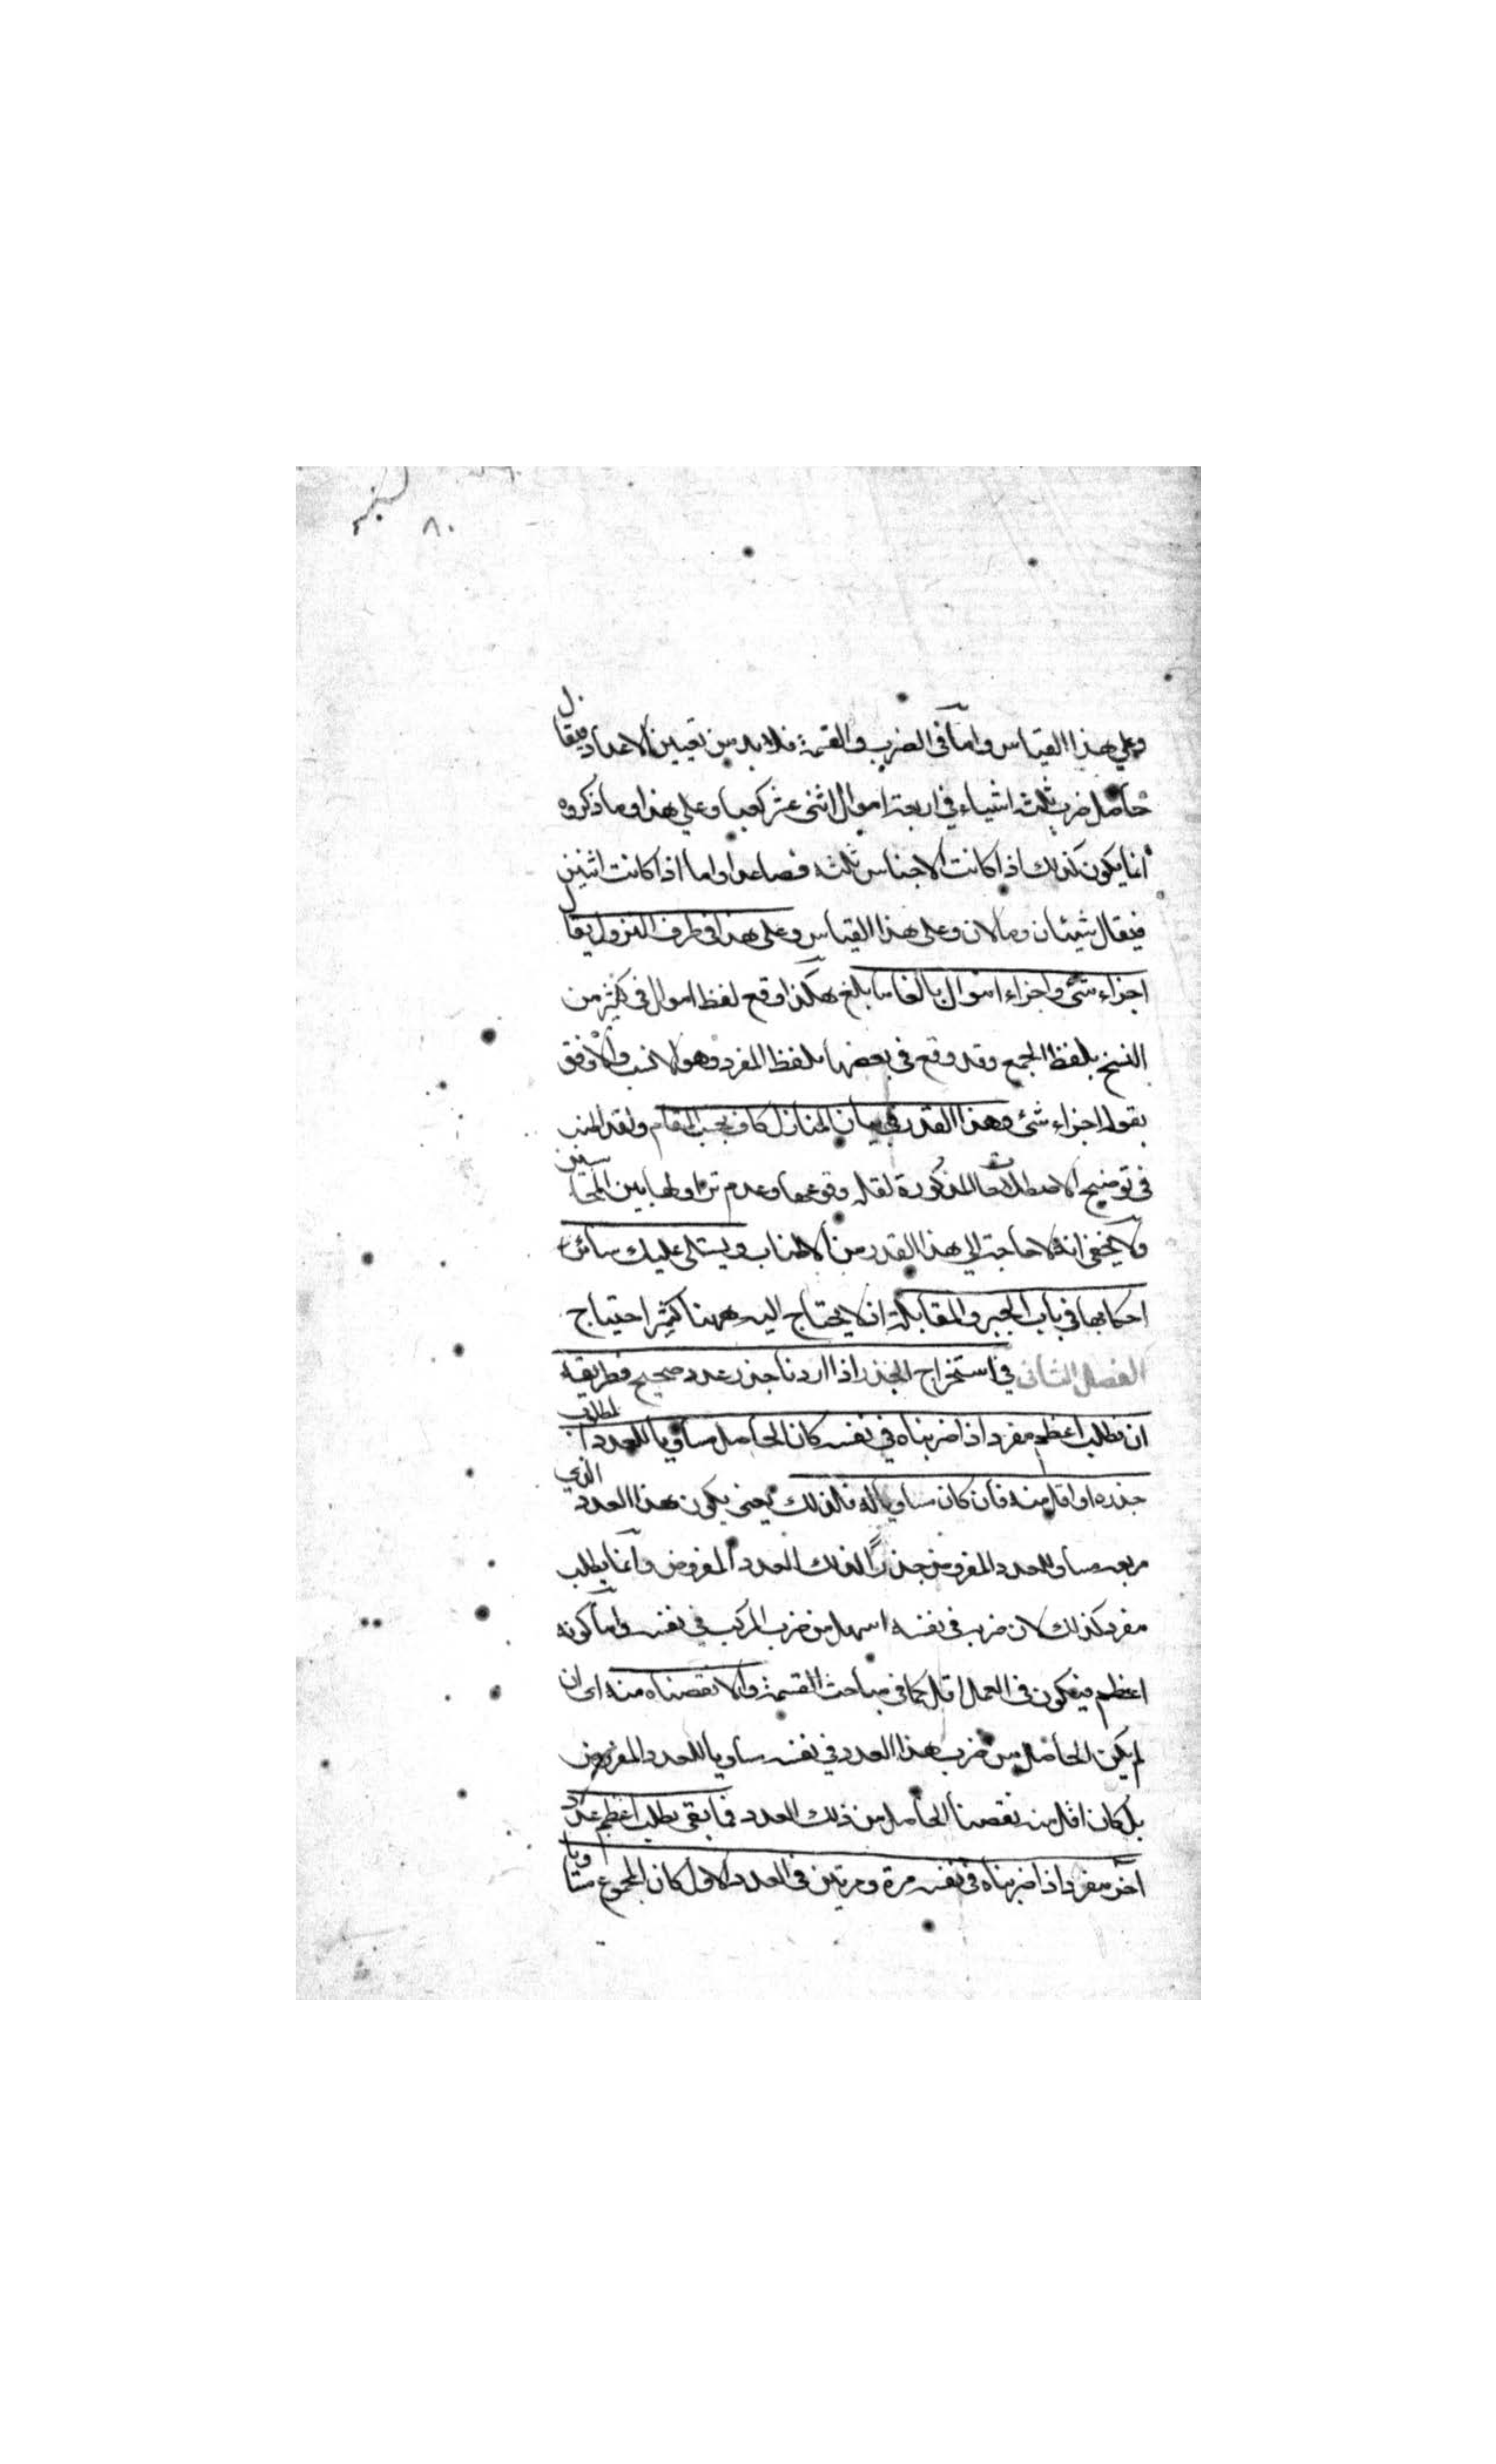 ٨٠
وعلي هذا القياس واما في الضرب والقسمة فلا بد من تعيين الاعداد فيقال
حاصل ضرب ثلثة اشياء في اربعة اموال اثني عشر كعبا وعلي هذا وما ذكروه
انما يكون كذلك اذا كانت الاجناس ثلثه فصاعدا واما اذا كانت اثنين
فيقال شيئان ومالان وعلى هذا القياس وعلى هذا في طرف النزول يقال
اجزاء شئ واجزاء اموال بالغا ما بلغ هكذا وقع لفظ اموال في كثير من
النسخ بلفظ الجمع وقد وقع في بعضها بلفظ المفرد وهو الانسب والاوفق
بقوله اجزاء شئ وهذا القدر في بيان المنازل كاف بحسب المقام ولقد اطنب
في توضيح الاصطلاحات المذكورة لقلة وقوعها وعدم تداولها بين المحاسبين
ولا يخفى انه لا حاجة الي هذا القدر من الاطناب وسيتلى عليك سائر
احكامها في باب الجبر والمقابلة اذ لا يحتاج اليه ههنا كثير احتياج
الفصل الثاني في استخراج الجذر اذا اردنا جذر عدد صحيح فطريقه
ان نطلب اعظم مفرد اذا ضربناه في نفسه كان الحاصل مساويا للعدد المطلوب
جذره او اقل منه فان كان مساويا له فالذلك يعني يكون هذا العدد الذي
مربعه مساو للعدد المفروض جذرًا لذلك العدد المفروض وانما يطلب
مفرد كذلك لان ضربه في نفسه اسهل من ضرب المركب في نفسه واما كونه
اعظم فيكون في العمل اقل كما في مباحث القسمة والا نقصناه منه اى ان
لم يكن الحاصل من ضرب هذا العدد في نفسه ساويا للعدد المفروض
بل كان اقل منه نقصنا الحاصل من ذلك العدد فما بقى يطلب اعظم عدد
آخر مفرد اذا ضربناه في نفسه مرة ومرتين في العدد الاول كان المجموع مساويا